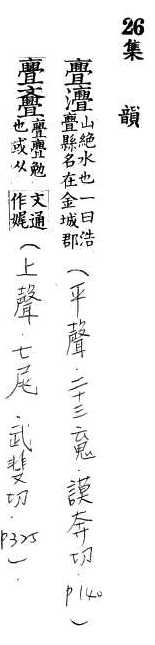 26集 韻
亹
山絕水也一曰浩
亹縣名在金城郡
(平聲．二十三魂．謨奔切．p140)
亹斖
亹亹勉
也或从
文通
作娓
(上聲．七尾．武斐切．p325)．